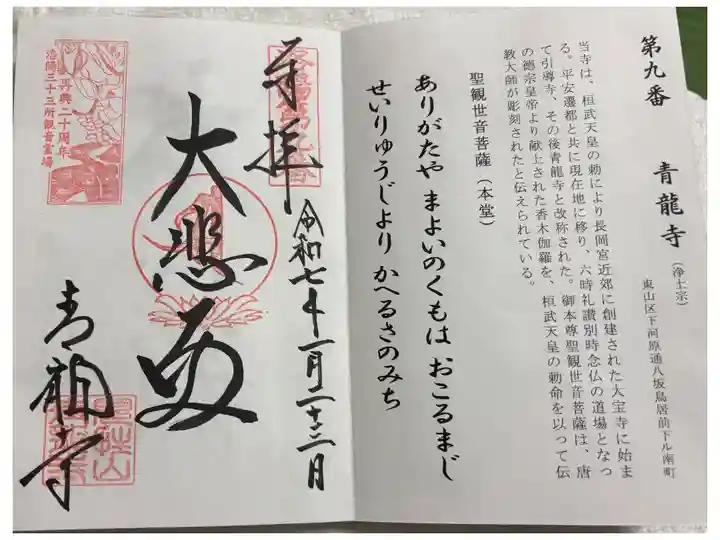 第九番　青龍寺
（浄土宗）
東山区下河原通八坂鳥居前下ル南町
当寺は、桓武天皇の勅により長岡宮近郊に創建された大宝寺に始ま
る。平安遷都と共に現在地に移り、六時礼讃別時念仏の道場となっ
て引導寺、その後青龍寺と改称された。御本尊聖観世音菩薩は、唐
の徳宗皇帝より献上された香木伽羅を、桓武天皇の勅命を以って伝
教大師が彫刻されたと伝えられている。
聖観世音菩薩（本堂）
ありがたや まよいのくもは おこるまじ
せいりゅうじより かへるさのみち
奉拝
令和七年一月二十三日
大悲殿
青龍寺
再興二十周年
洛陽三十三所観音霊場